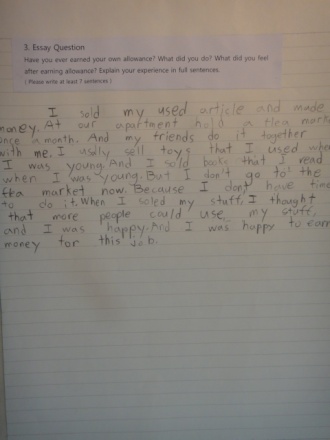 3. Essay Question
Have you ever earned your own allowance? What did you do? What did you feel
after earning allowance? Explain your experience in full sentences.
( Please write at least 7 sentences )
I sold my used article and made
money. At our apartment hold a flea mark
once a month. And my friends do it together
with me. I uslly sell toys that I used whe
I was young. And I sold books that I read
when I was young. But I don't go to the
flea market now. Because I dont have time
to do it. When I soled my stuff, I thought
that more people could use my stuff,
and I was happy. And I was happy to earn
money for this job.